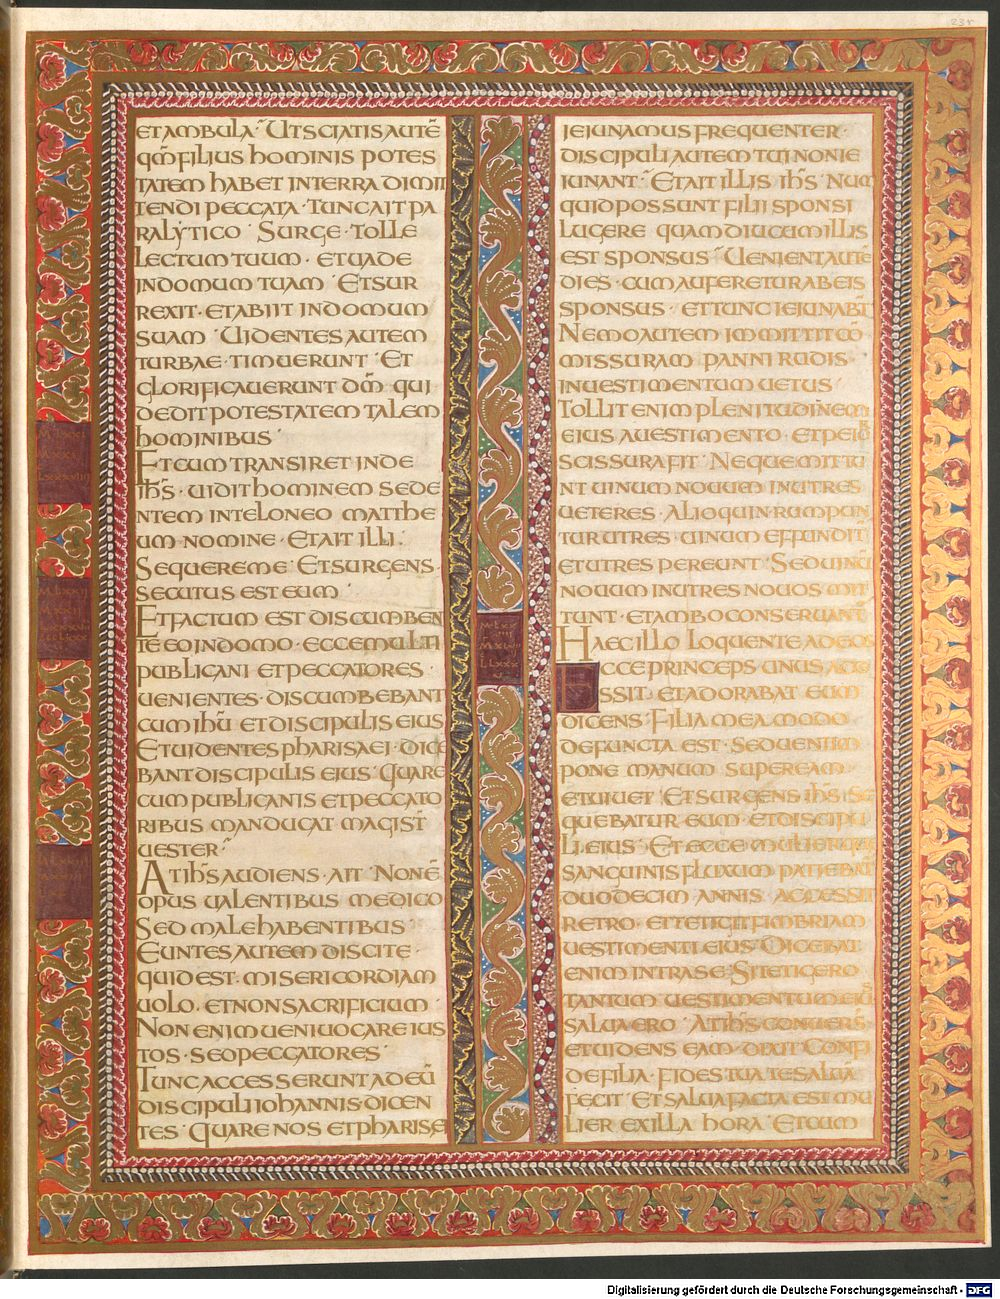 23r
ET AMBULA · UT SCIATIS AUTĒ
QM̄ FILIUS HOMINIS POTES
TATEM HABET IN TERRA DIMIT
TENDI PECCATA · TUNC AIT PA
RALYTICO · SURGE · TOLLE
LECTUM TUUM · ET UADE
IN DOMUM TUAM · ET SUR
REXIT · ET ABIIT IN DOMUM
SUAM · UIDENTES AUTEM
TURBAE · TIMUERUNT · ET
GLORIFICAUERUNT DM̄ QUI
DEDIT POTESTATEM TALEM
HOMINIBUS ·
ET CUM TRANSIRET INDE
IHS̄ · UIDIT HOMINEM SEDE
NTEM IN TELONEO MATTHE
UM NOMINE · ET AIT ILLI ·
SEQUERE ME · ET SURGENS
SECUTUS EST EUM ·
ET FACTUM EST DISCUMBEN
TE EO IN DOMO · ECCE MULTI
PUBLICANI ET PECCATORES ·
UENIENTES · DISCUMBEBANT
CUM IHŪ ET DISCIPULIS EIUS
ET UIDENTES PHARISAEI · DICE
BANT DISCIPULIS EIUS · QUARE
CUM PUBLICANIS ET PECCATO
RIBUS MANDUCAT MAGIST̄
UESTER ·
AT IHS̄ AUDIENS · AIT · NON Ē
OPUS UALENTIBUS MEDICO
SED MALE HABENTIBUS ·
EUNTES AUTEM DISCITE ·
QUID EST · MISERICORDIAM
UOLO · ET NON SACRIFICIUM ·
NON ENIM UENI UOCARE IUS
TOS · SED PECCATORES ·
TUNC ACCESSERUNT AD EŪ
DISCIPULI IOHANNIS · DICEN
TES · QUARE NOS ET PHARISE
IEIUNAMUS FREQUENTER ·
DISCIPULI AUTEM TUI NON IE
IUNANT · ET AIT ILLIS IHS̄ · NUM
QUID POSSUNT FILII SPONSI
LUGERE QUAMDIU CUM ILLIS
EST SPONSUS · UENIENT AUTĒ
DIES · CUM AUFERETUR AB EIS
SPONSUS · ET TUNC IEIUNABT̄
NEMO AUTEM IMMITTIT CŌ
MISSURAM PANNI RUDIS ·
IN UESTIMENTUM UETUS ·
TOLLIT ENIM PLENITUDINEM
EIUS A UESTIMENTO · ET PEIOR
SCISSURA FIT · NEQUE MITTU
NT UINUM NOUUM IN UTRES
UETERES · ALIOQUIN RUMPUN
TUR UTRES · UINUM EFFUNDIT
ET UTRES PEREUNT · SED UINŪ
NOUUM IN UTRES NOUOS MIT
TUNT · ET AMBO CONSERUANT̄
HAEC ILLO LOQUENTE AD EOS
ECCE PRINCEPS UNUS ACCE
SSIT · ET ADORABAT EUM
DICENS · FILIA MEA MODO
DEFUNCTA EST · SED UENI IM
PONE MANUM SUPER EAM
ET UIUET · ET SURGENS IHS̄ · SE
QUEBATUR EUM · ET DISCIPU
LI EIUS · ET ECCE MULIER QUE
SANGUINIS FLUXUM PATIEBAT̄
DUODECIM ANNIS · ACCESSIT
RETRO · ET TETIGIT FIMBRIAM
UESTIMENTI EIUS · DICEBAT
ENIM INTRA SE · SI TETIGERO
TANTUM UESTIMENTUM EIUS
SALUA ERO · AT IHS̄ CONUERS̄
ET UIDENS EAM · DIXIT · CONFI
DE FILIA · FIDES TUA TE SALUĀ
FECIT · ET SALUA FACTA EST MU
LIER EX ILLA HORA · ET CUM
Digitalisierung gefördert durch die Deutsche Forschungsgemeinschaft - DFG